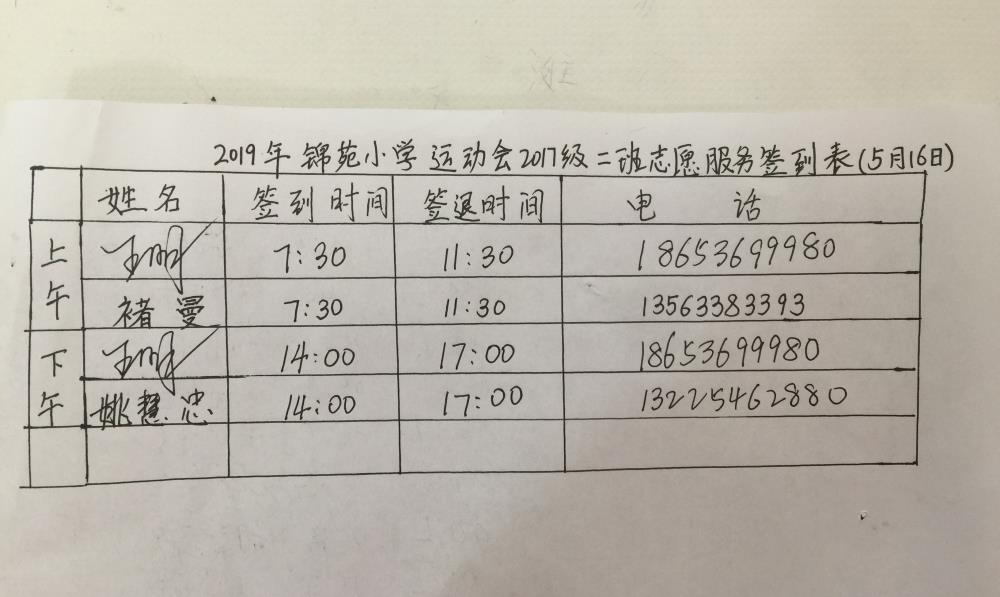 2019年锦苑小学运动会2017级二班志愿服务签到表(5月16日)
姓名 签到时间 签退时间 电话
上午 王明 7:30 11:30 18653699980
褚曼 7:30 11:30 13563383393
下午 王明 14:00 17:00 18653699980
姚慧忠 14:00 17:00 13225462880